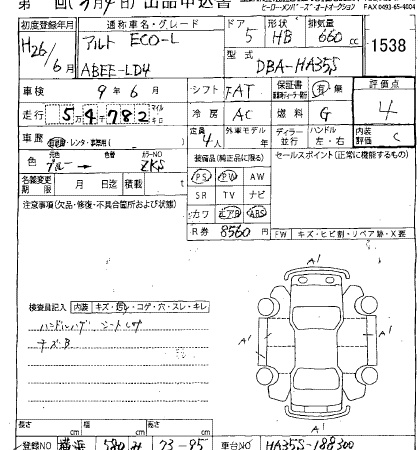 第 回( 月4日) 出品申込書
ヒーローメンバーズ・オートオークション FAX 0493-65-4004
初度登録年月 通称車名・グレード ドア 形状 排気量
H26/6月 アルト ECO-L 5 HB 660cc 1538
ABEE-LD4 型式 DBA-HA35S
車検 9年6月 シフト FAT 保証書 有 無 評価点
走行 5万4千782 マイル キロ 冷房 AC 燃料 G 4
車歴 自家用・レンタ・事業用( ) 定員 4人 外車モデル 年 ディーラー 並行 ハンドル 左・右 内装評価 C
色 元色 ブルー→ 色替 カラーNO ZKS 装備品(純正品に限る) セールスポイント(正常に機能するもの)
名義変更期限 月 日迄 積載 t PS PW AW
注意事項(欠品・修復・不具合箇所および状態) SR TV ナビ
カワ エアB ABS
R券 8560円 FW キズ・ヒビ割・リペア跡・X要
検査員記入 内装 キズ・汚レ・コゲ・穴・スレ・キレ
ハンドルハゲ シート
キズB
A1
A1 A1
A1
長さ cm 幅 cm 高さ cm
登録NO 横浜 580 み 73-85 車台NO HA35S-188300